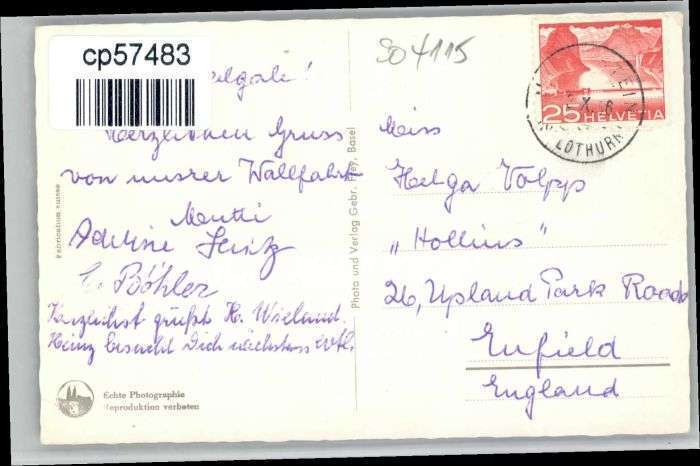 cp57483
SO4115
25 HELVETIA
LOTHURN
Herzlichen Gruss
von unsrer Wallfahrt
Mutti
Adeline Jentz
E. Böhler
Herzlichst grüsst H. Wieland.
Heinz besucht Dich nächstens evtl.
Fabrication suisse
Echte Photographie
Reproduktion verboten
Photo und Verlag Gebr. Frey, Basel
Miss
Helga Volpp
„Hollins"
26, Upland Park Road
Enfield
England